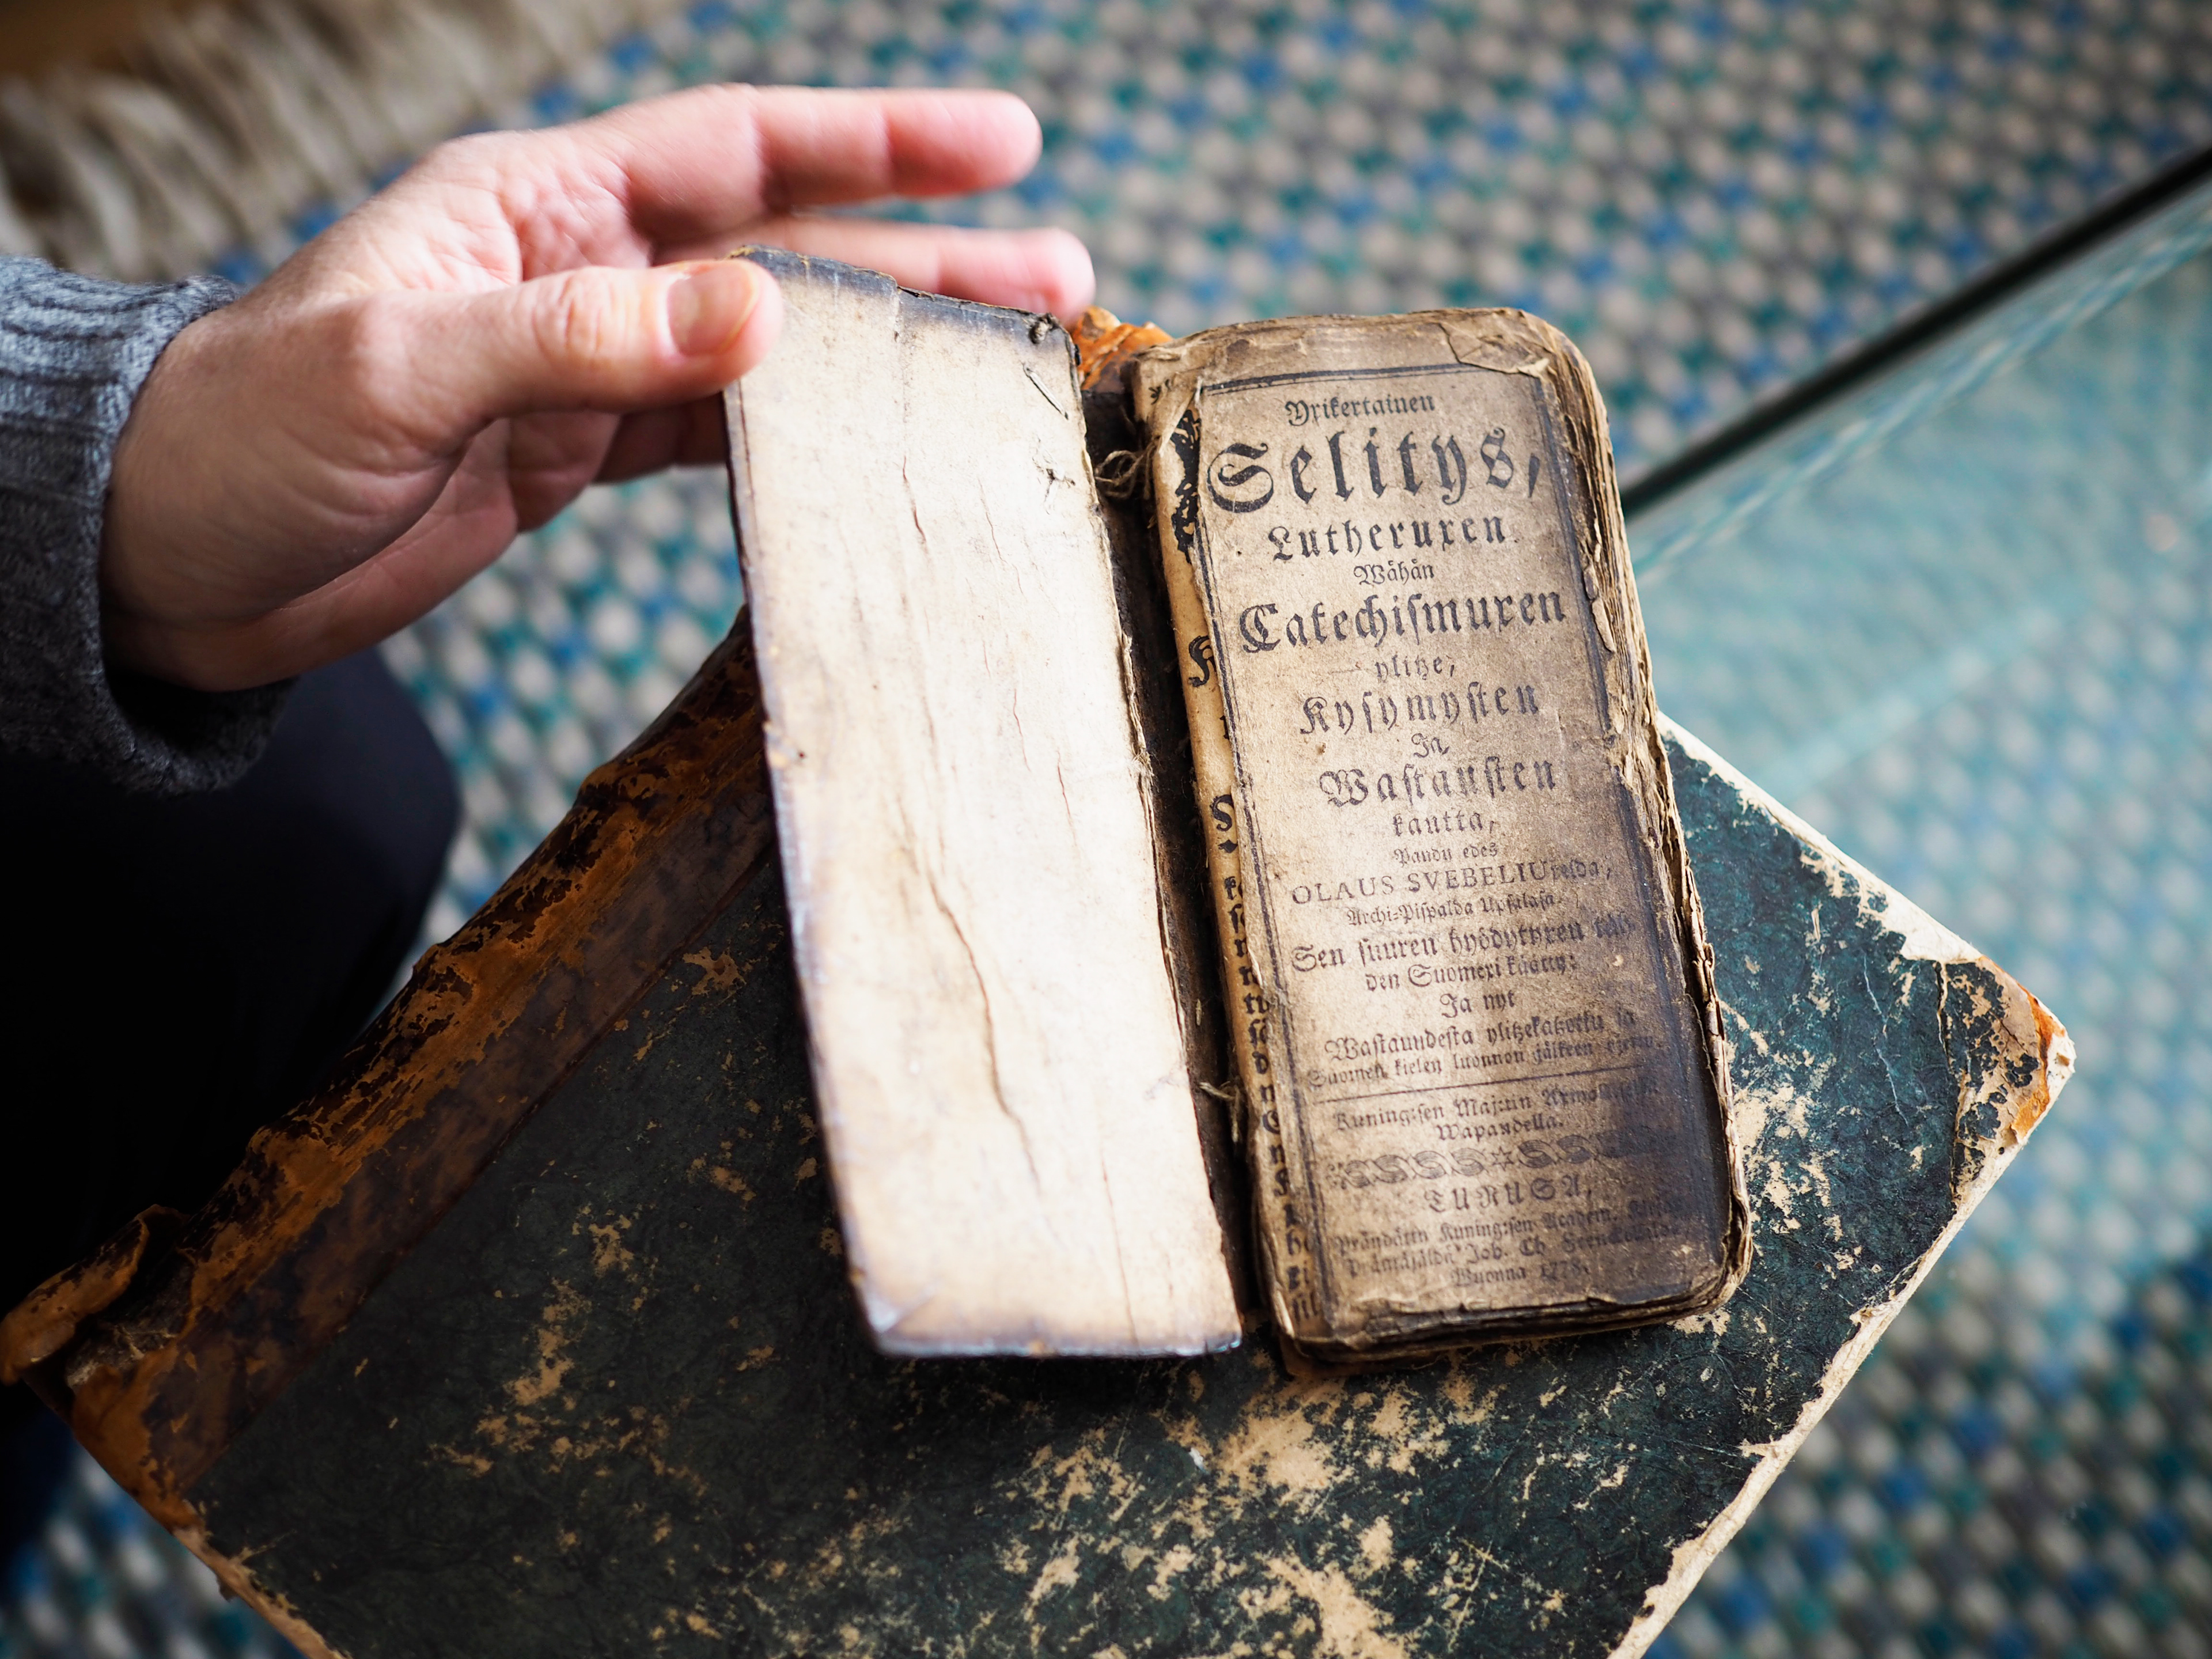 Yxikertainen
Selitys,
Lutheruxen
Wåhån
Catechismuxen
ylitze,
Kysymysten
Ja,
Wastausten
kautta,
Pandu edes
OLAUS SVEBELIUxelda,
Archi-Pispalda Upsalasa.
Sen suuren hyödytyxen
den Suomexi käätty:
Ja nyt
Wastaundesta ylitzekatzottu ja
Suomen kielen luonnon jälkeen
Kuningisen Maj:tin
Wapaudella.
TURUSA,
Prändätty Kuningisen Academ.
Joh. Ch
Wuonna 1778.